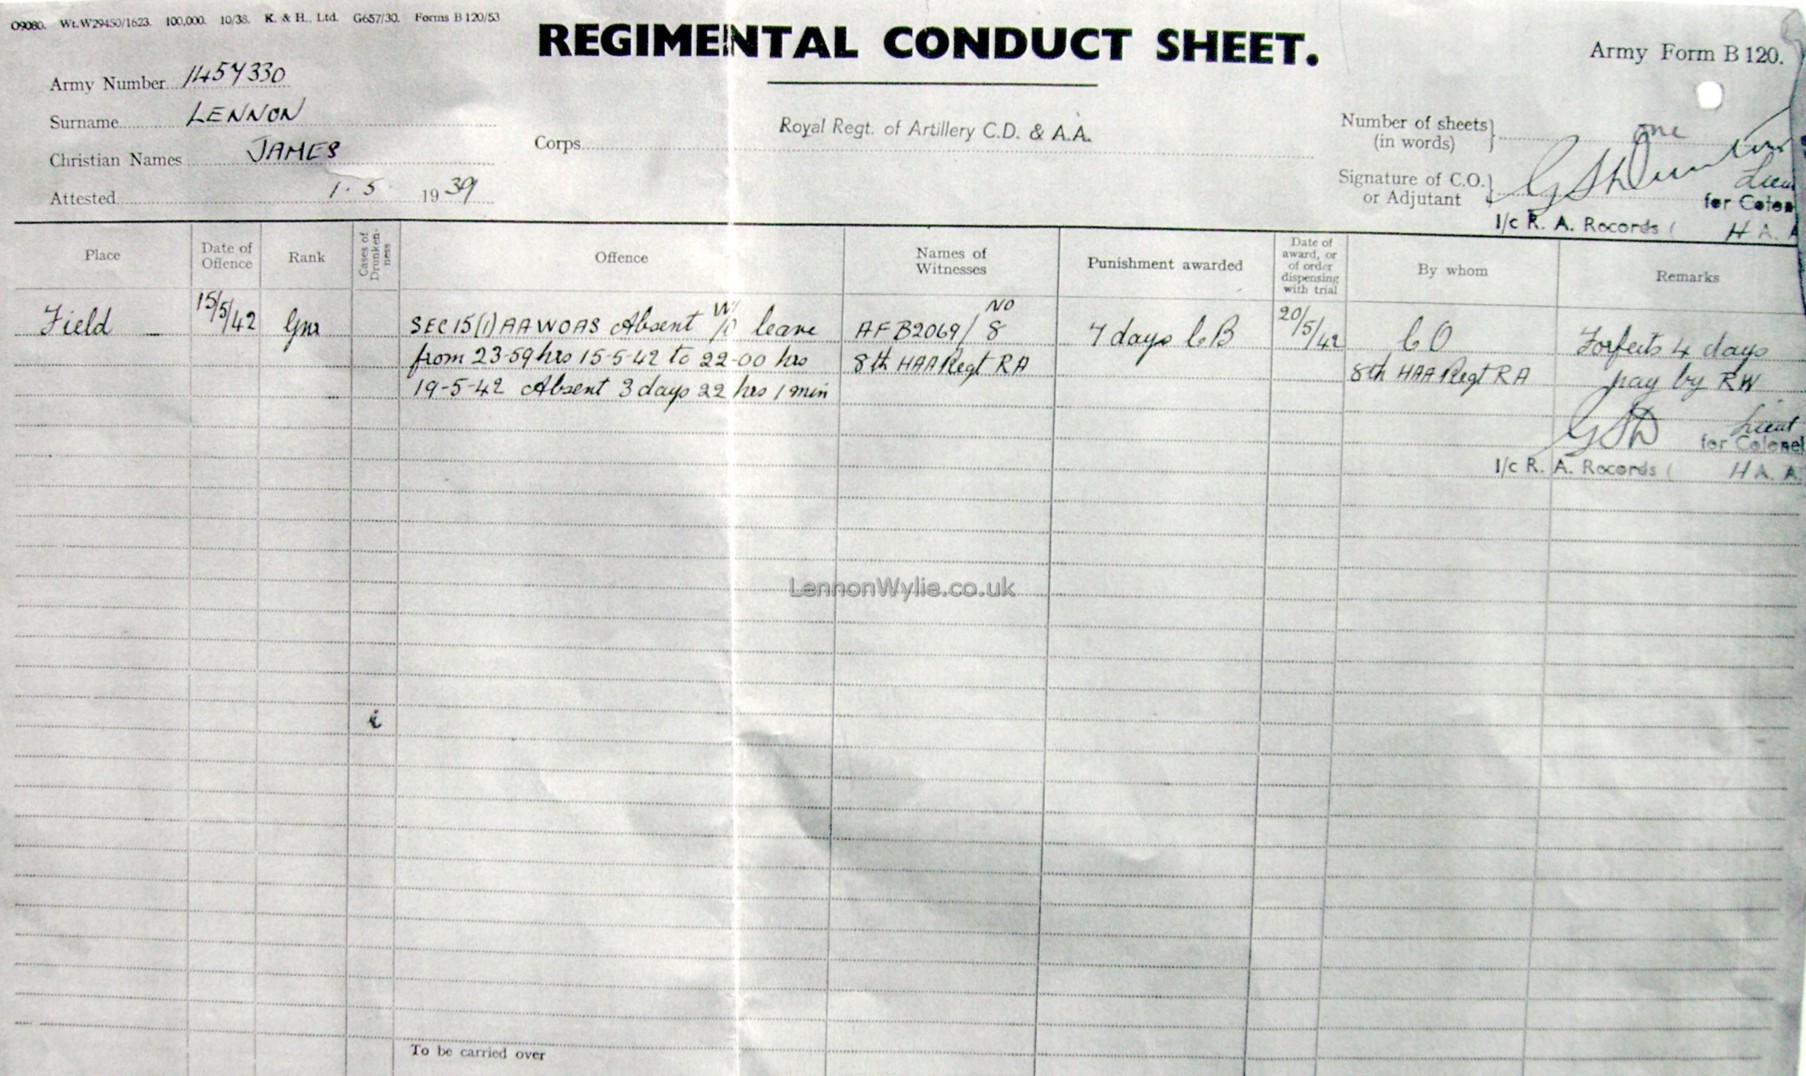 O9080. Wt.W29450/1623. 100,000. 10/38. K. & H., Ltd. G657/30. Forms B120/53
REGIMENTAL CONDUCT SHEET.
Army Form B 120.
Army Number 1457330
Surname LENNON
Christian Names JAMES
Attested 1.5 1939
Corps Royal Regt. of Artillery C.D. & A.A.
Number of sheets} one
(in words)
Signature of C.O.} Lieut
or Adjutant
for Colonel
I/c R. A. Records ( H A. A
Place
Date of
Offence
Rank
Cases of
Drunken-
ness
Offence
Names of
Witnesses
Punishment awarded
Date of
award, or
of order
dispensing
with trial
By whom
Remarks
Field
15/5/42
Gnr
SEC 15(1) AA WOAS Absent W/O leave
from 23-59 hrs 15-5-42 to 22-00 hrs
19-5-42 Absent 3 days 22 hrs 1 min
NO
AFB2069/8
8th HAA Regt RA
7 days CB
20/5/42
CO
8th HAA Regt RA
Forfeits 4 days
pay by RW
GSD Lieut
for Colonel
I/c R. A. Records ( H A. A.
LennonWylie.co.uk
To be carried over